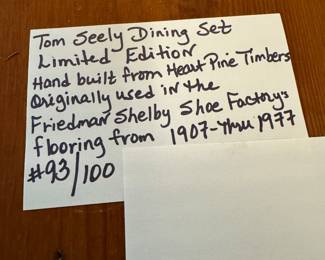 Tom Seely Dining Set
Limited Edition
Hand built from Heart Pine Timbers
Originally used in the
Friedman Shelby Shoe Factory's
flooring from 1907-thru 1977
#93/100